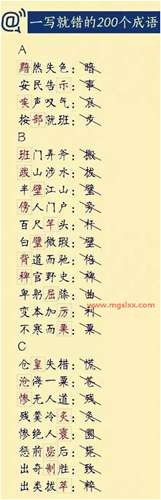 @ 一写就错的200个成语
A
黯然失色：暗
安民告示：事
唉声叹气：哀
按部就班：步
B
班门弄斧：搬
跋山涉水：拔
半壁江山：璧
傍人门户：旁
百尺竿头：杆
白璧微瑕：壁
背道而驰：弛
稗官野史：裨
卑躬屈膝：曲
变本加厉：利
不寒而栗：粟
www.mgslxx.com
C
仓皇失措：慌
沧海一粟：苍
惨无人道：残
残羹冷炙：灸
惨绝人寰：圜
惩前毖后：
出奇制胜：致
出类拔萃：粹